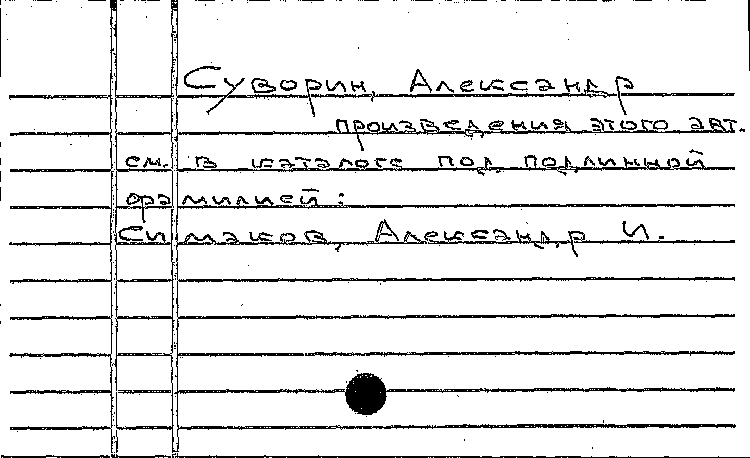 Суворин, Александр
произведения этого авт.
см. в каталоге под подлинной
фамилией:
Симаков, Александр И.